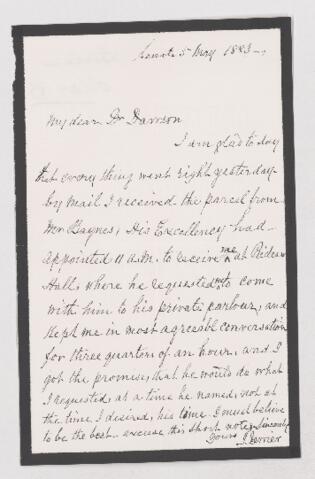 Senate 5 May 1883
My dear Dr Dawson
I am glad to say
that every thing went right yesterday
by mail I received the parcel from
Mr Baynes, His Excellency had
appointed 11 a.m. to receive me at Rideau
Hall, where he requested me to come
with him to his private parlour, and
kept me in most agreable conversation
for three quarters of an hour, and I
got the promise, that he would do what
I requested, at a time he named, not at
the time I desired, his time I must believe
to be the best. excuse this short note, Sincerely
Yours